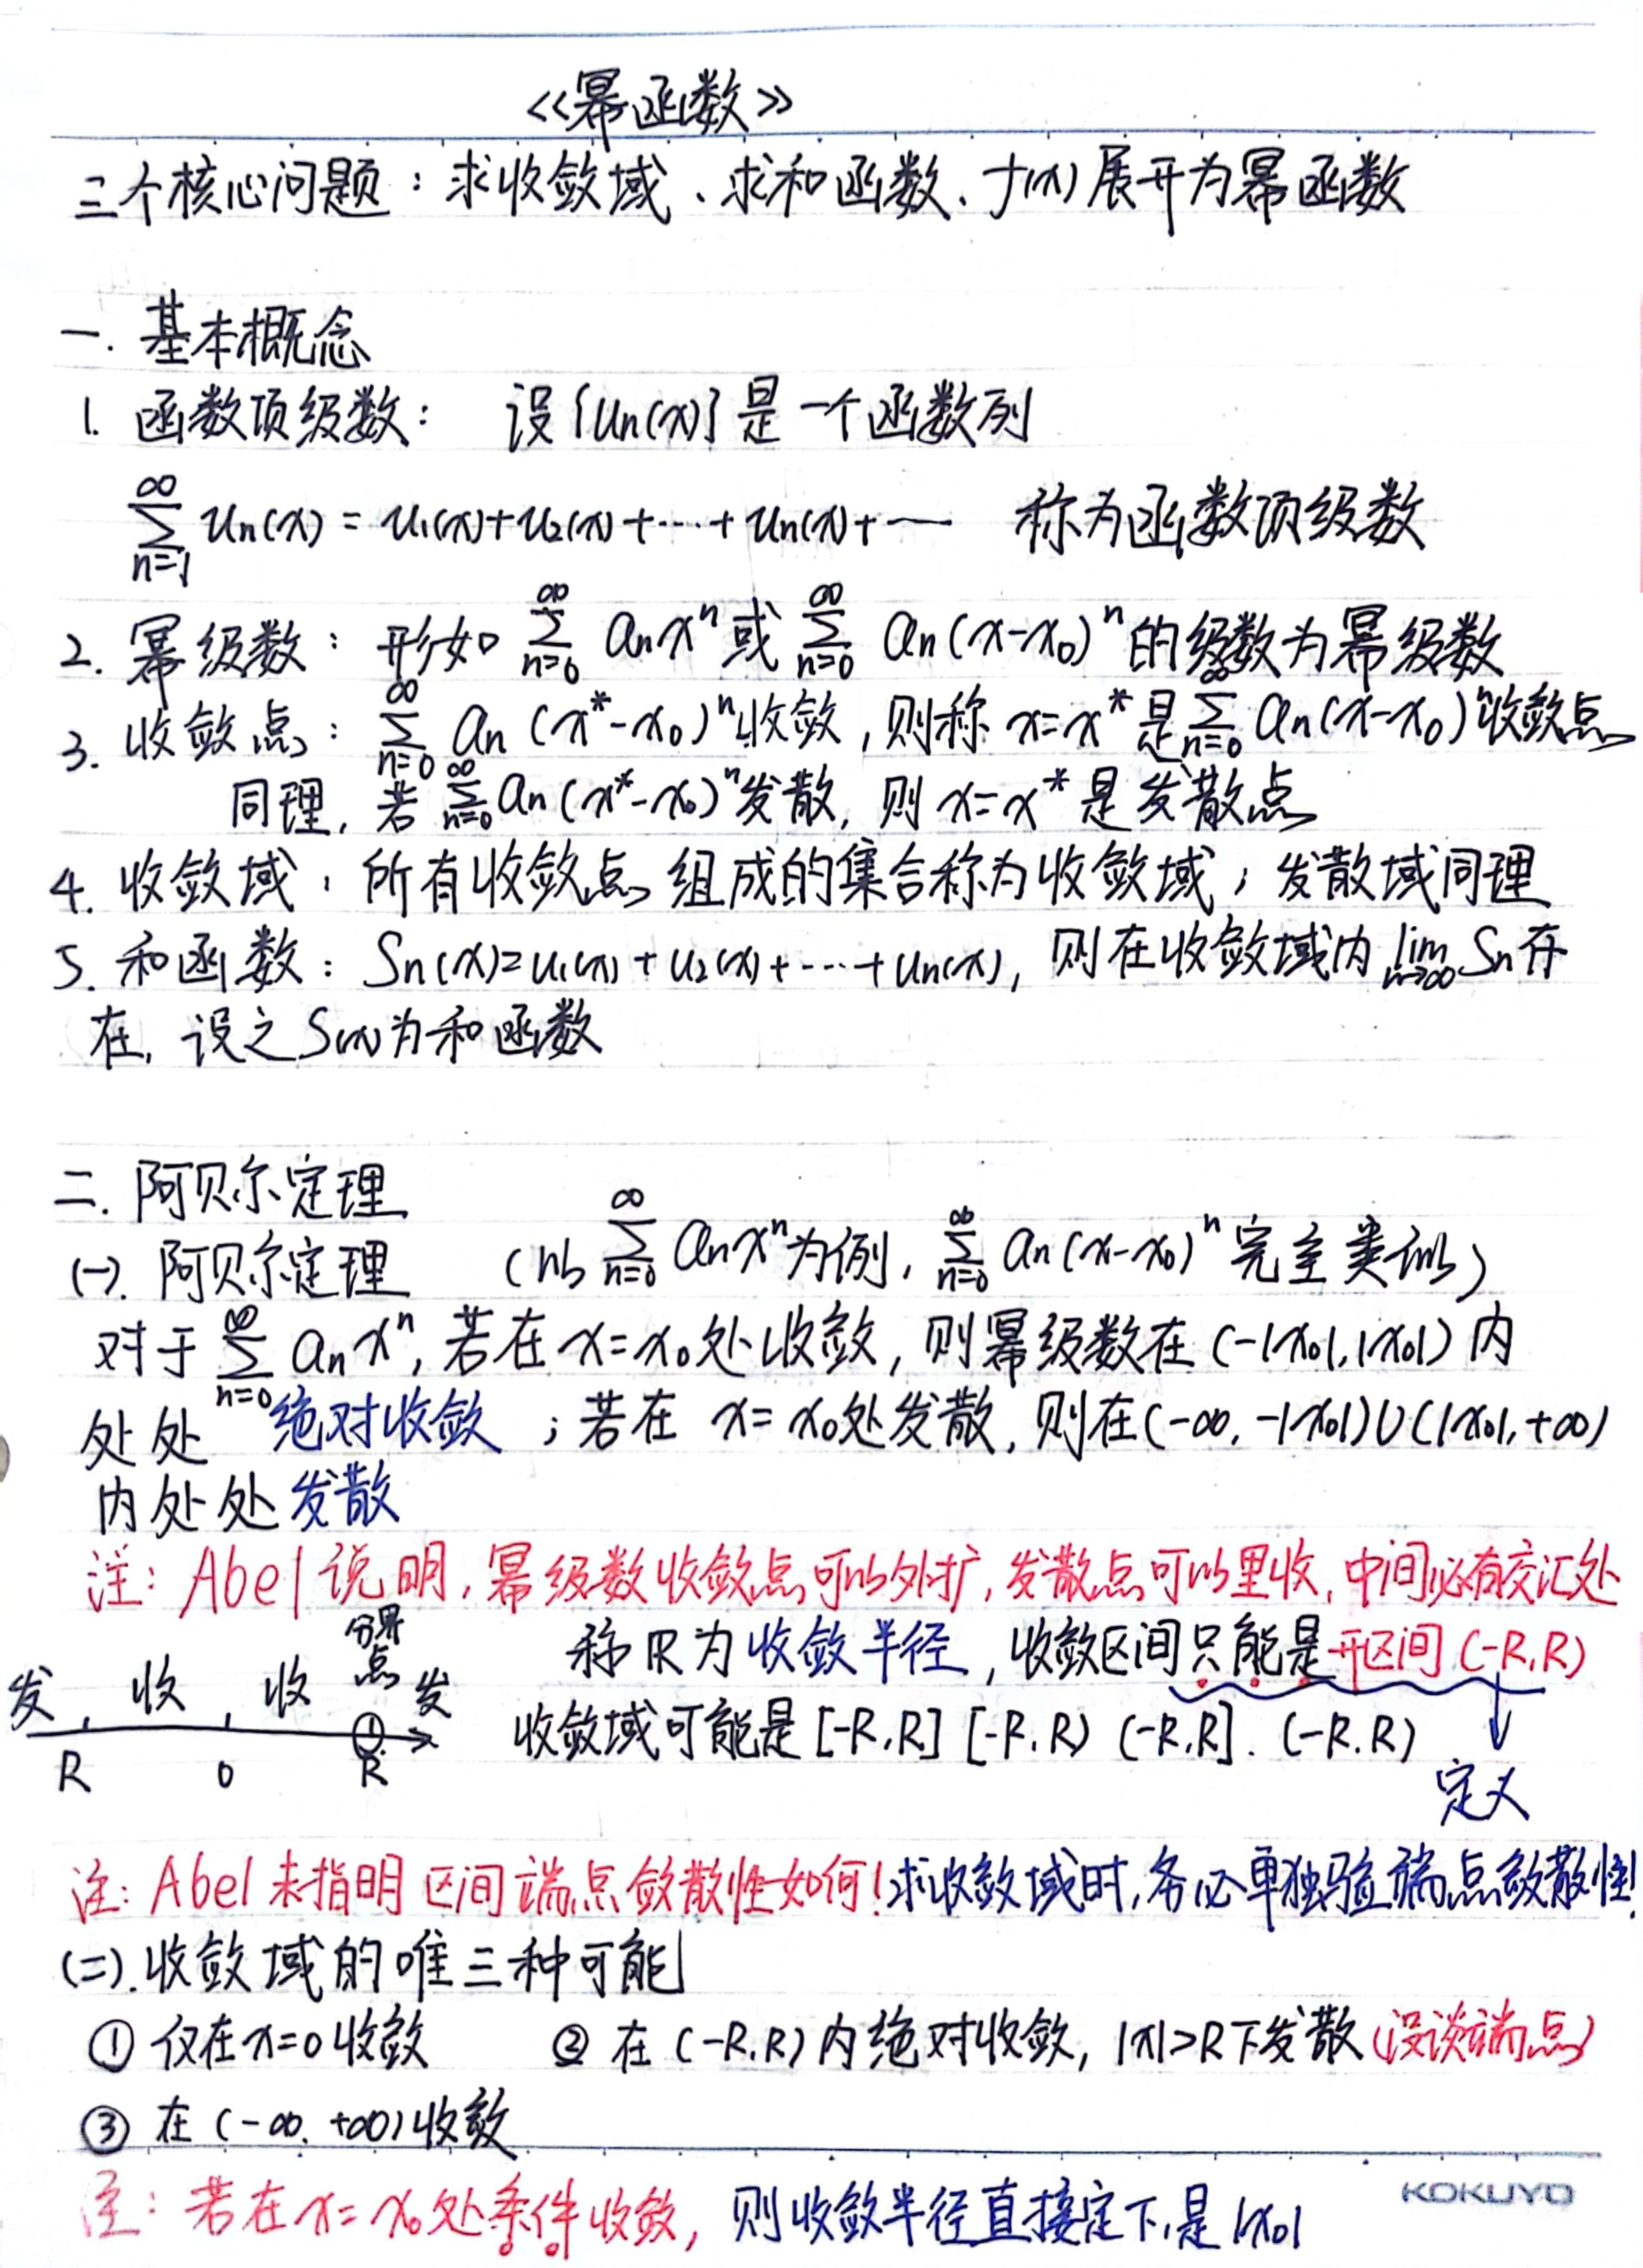 《幂函数》
三个核心问题：求收敛域、求和函数、f(x)展开为幂函数
一. 基本概念
1. 函数项级数： 设{un(x)}是一个函数列
∑_{n=1}^{∞} un(x) = u1(x)+u2(x)+⋯+un(x)+⋯ 称为函数项级数
2. 幂级数：形如 ∑_{n=0}^{∞} an x^n 或 ∑_{n=0}^{∞} an(x-x0)^n 的级数为幂级数
3. 收敛点：∑_{n=0}^{∞} an(x*-x0)^n 收敛，则称 x=x* 是 ∑_{n=0}^{∞} an(x-x0)^n 收敛点
同理，若 ∑_{n=0}^{∞} an(x*-x0)^n 发散，则 x=x* 是发散点
4. 收敛域：所有收敛点组成的集合称为收敛域；发散域同理
5. 和函数：Sn(x)=u1(x)+u2(x)+⋯+un(x)，则在收敛域内 lim_{n→∞} Sn 存
在，设之S(x)为和函数
二. 阿贝尔定理
(一). 阿贝尔定理 （以 ∑_{n=0}^{∞} an x^n 为例，∑_{n=0}^{∞} an(x-x0)^n 完全类似）
对于 ∑_{n=0}^{∞} an x^n，若在 x=x0 处收敛，则幂级数在 (-|x0|,|x0|) 内
处处 绝对收敛；若在 x=x0处发散，则在(-∞,-|x0|)∪(|x0|,+∞)
内处处发散
注：Abel说明，幂级数收敛点可以外扩，发散点可以里收，中间必有交汇处
分界
点
发 收 收 发
R 0 R
称R为收敛半径，收敛区间只能是开区间(-R,R)
收敛域可能是[-R,R] [-R,R) (-R,R]. (-R,R)
定义
注：Abel未指明区间端点敛散性如何！求收敛域时，务必单独验端点敛散性！
(二). 收敛域的唯三种可能
① 仅在x=0收敛 ② 在(-R,R)内绝对收敛，|x|>R下发散(没谈端点)
③ 在(-∞,+∞)收敛
注：若在x=x0处条件收敛，则收敛半径直接定下，是|x0|
KOKUYO